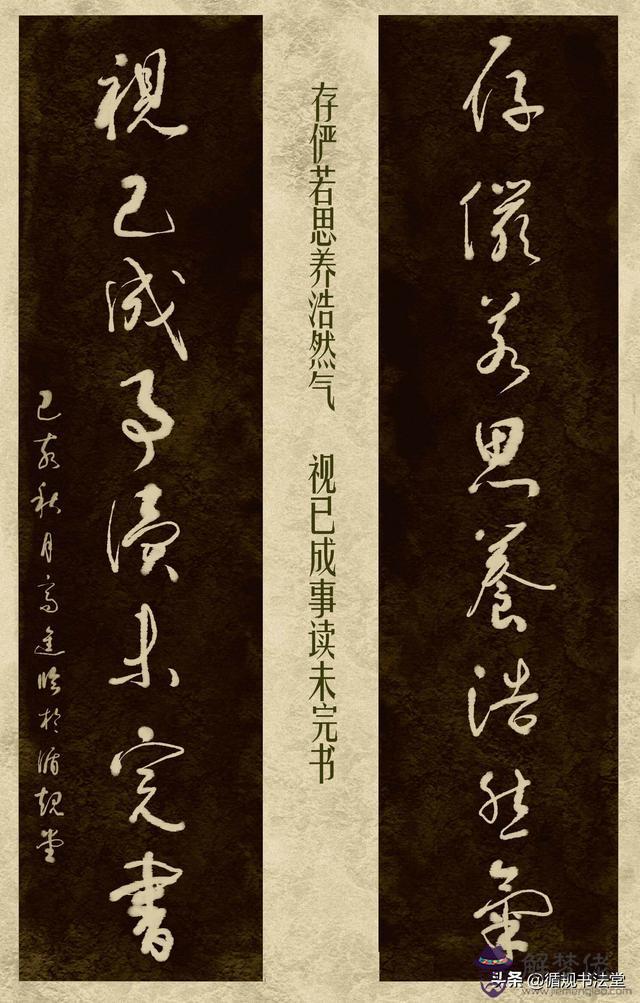 存儼若思養浩然氣
存俨若思养浩然气 视已成事读未完书
視已成事讀未完書
己亥秋月高進臨於循規堂
解梦佬
www.jiemenglao.com
头条@循规书法堂